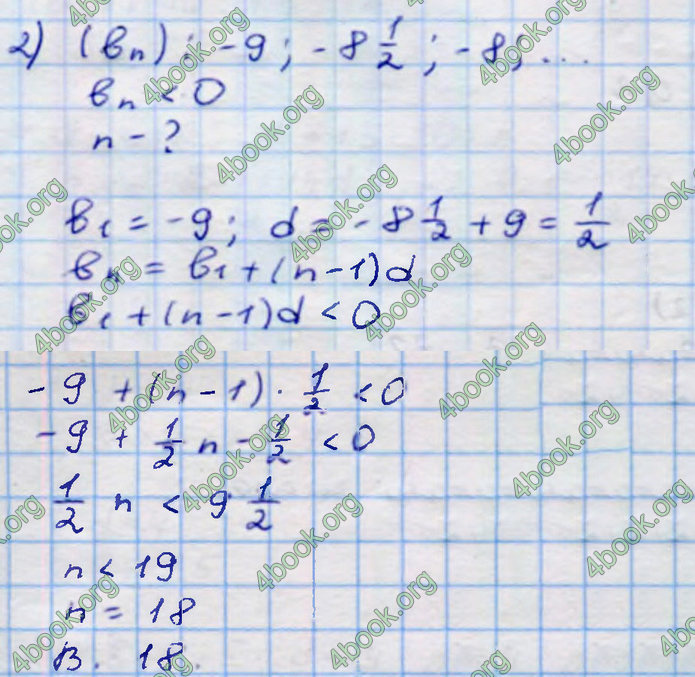 2) (вn): -9; -8 1/2; -8; ...
вn < 0
n - ?
в1 = -9; d = -8 1/2 + 9 = 1/2
вn = в1 + (n-1)d
в1 + (n-1)d < 0
-9 + (n-1) · 1/2 < 0
-9 + 1/2 n - 1/2 < 0
1/2 n < 9 1/2
n < 19
n = 18
В. 18.
4book.org